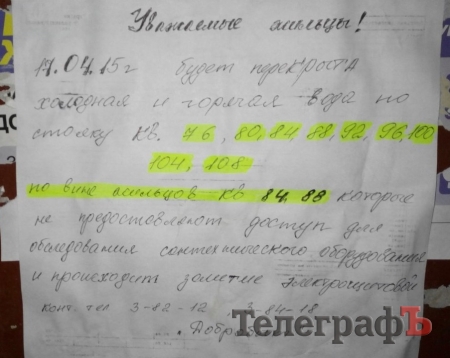 Уважаемые жильцы!
17.04.15г будет перекрыта
холодная и горячая вода по
стояку кв. 76, 80, 84, 88, 92, 96, 100
104, 108
по вине жильцов кв 84, 88 которые
не предоставляют доступ для
обследования сантехнического оборудования
и происходит залитие электрощитовой
конт. тел 3-82-12 3-84-18
ТелеграфЪ